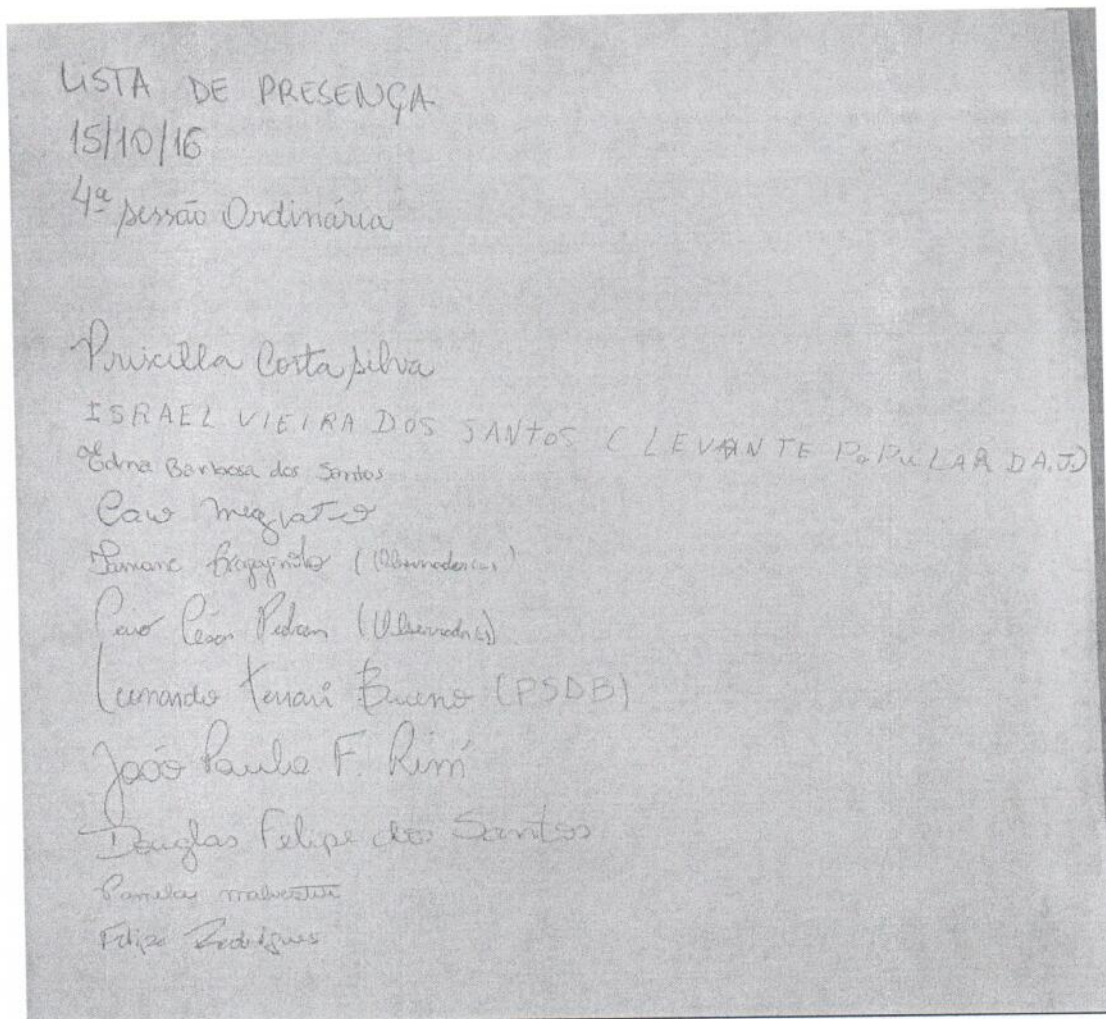 LISTA DE PRESENÇA
15/10/16
4ª sessão Ordinária
Priscilla Costa Silva
ISRAEL VIEIRA DOS SANTOS (LEVANTE POPULAR DA.J.)
Edna Barbosa dos Santos
Caio
(Observadores)
Caio César Pedran (Observador)
Leonardo Ferrari Bueno (PSDB)
João Paulo F. Rimi
Douglas Felipe dos Santos
Pamela malvestiti
Felipe Rodrigues